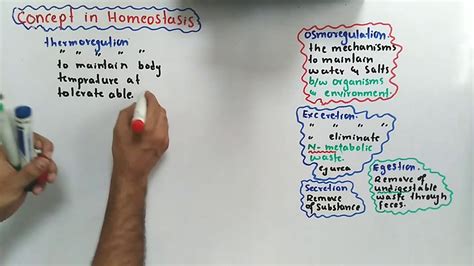 Concept in Homeostasis
thermoregultion
" " " " "
to maintain body
temprature at
tolerate able.
Osmoregulation
the mechanisms
to maintain
water & Salts
b/w organisms
& environment.
Exceretion.
" " "
" eliminate
N- metabolic
waste.
eg urea
Secretion
Remove
of Substance
Egestion.
Remove of
undigestable
waste through
feces.